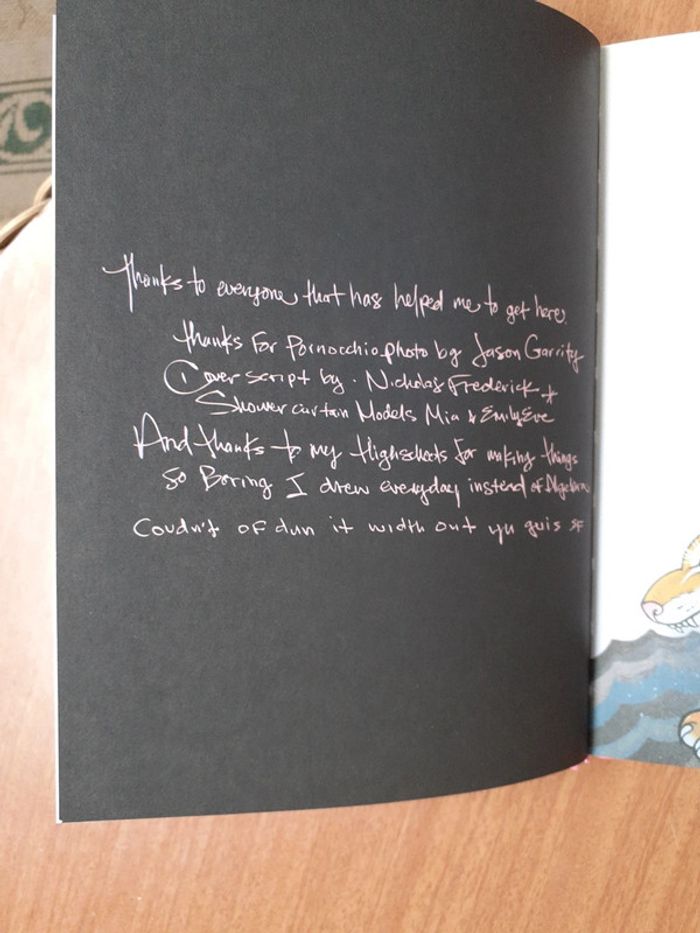 Thanks to everyone that has helped me to get here.
thanks for Pornocchio photo by Jason Garrity
Cover script by. Nicholas Frederick +
Shower curtain Models Mia & Emily Eve
And thanks to my Highschools for making things
So Boring I drew everyday instead of Algebra
Coudn't of dun it width out yu guis